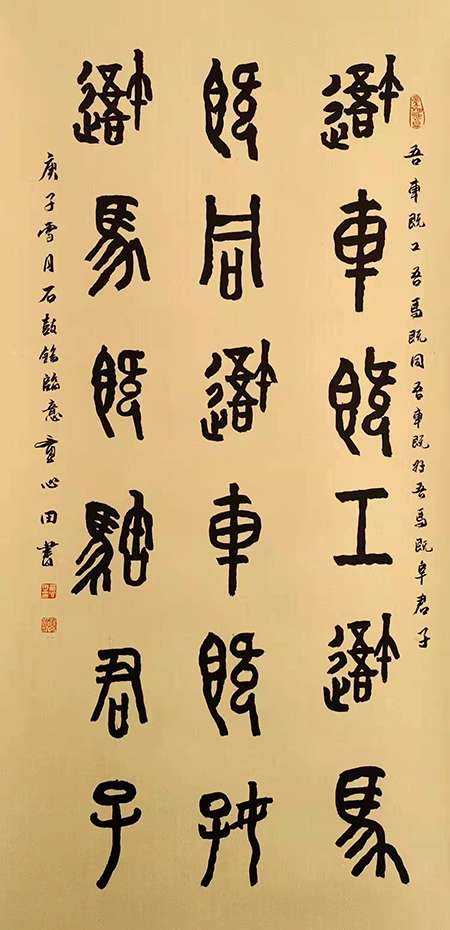 吾車既工吾馬既同吾車既好吾馬既阜君子
吾車既工吾馬
既同吾車既好
吾馬既阜君子
庚子雪月石鼓銘臨意心田書